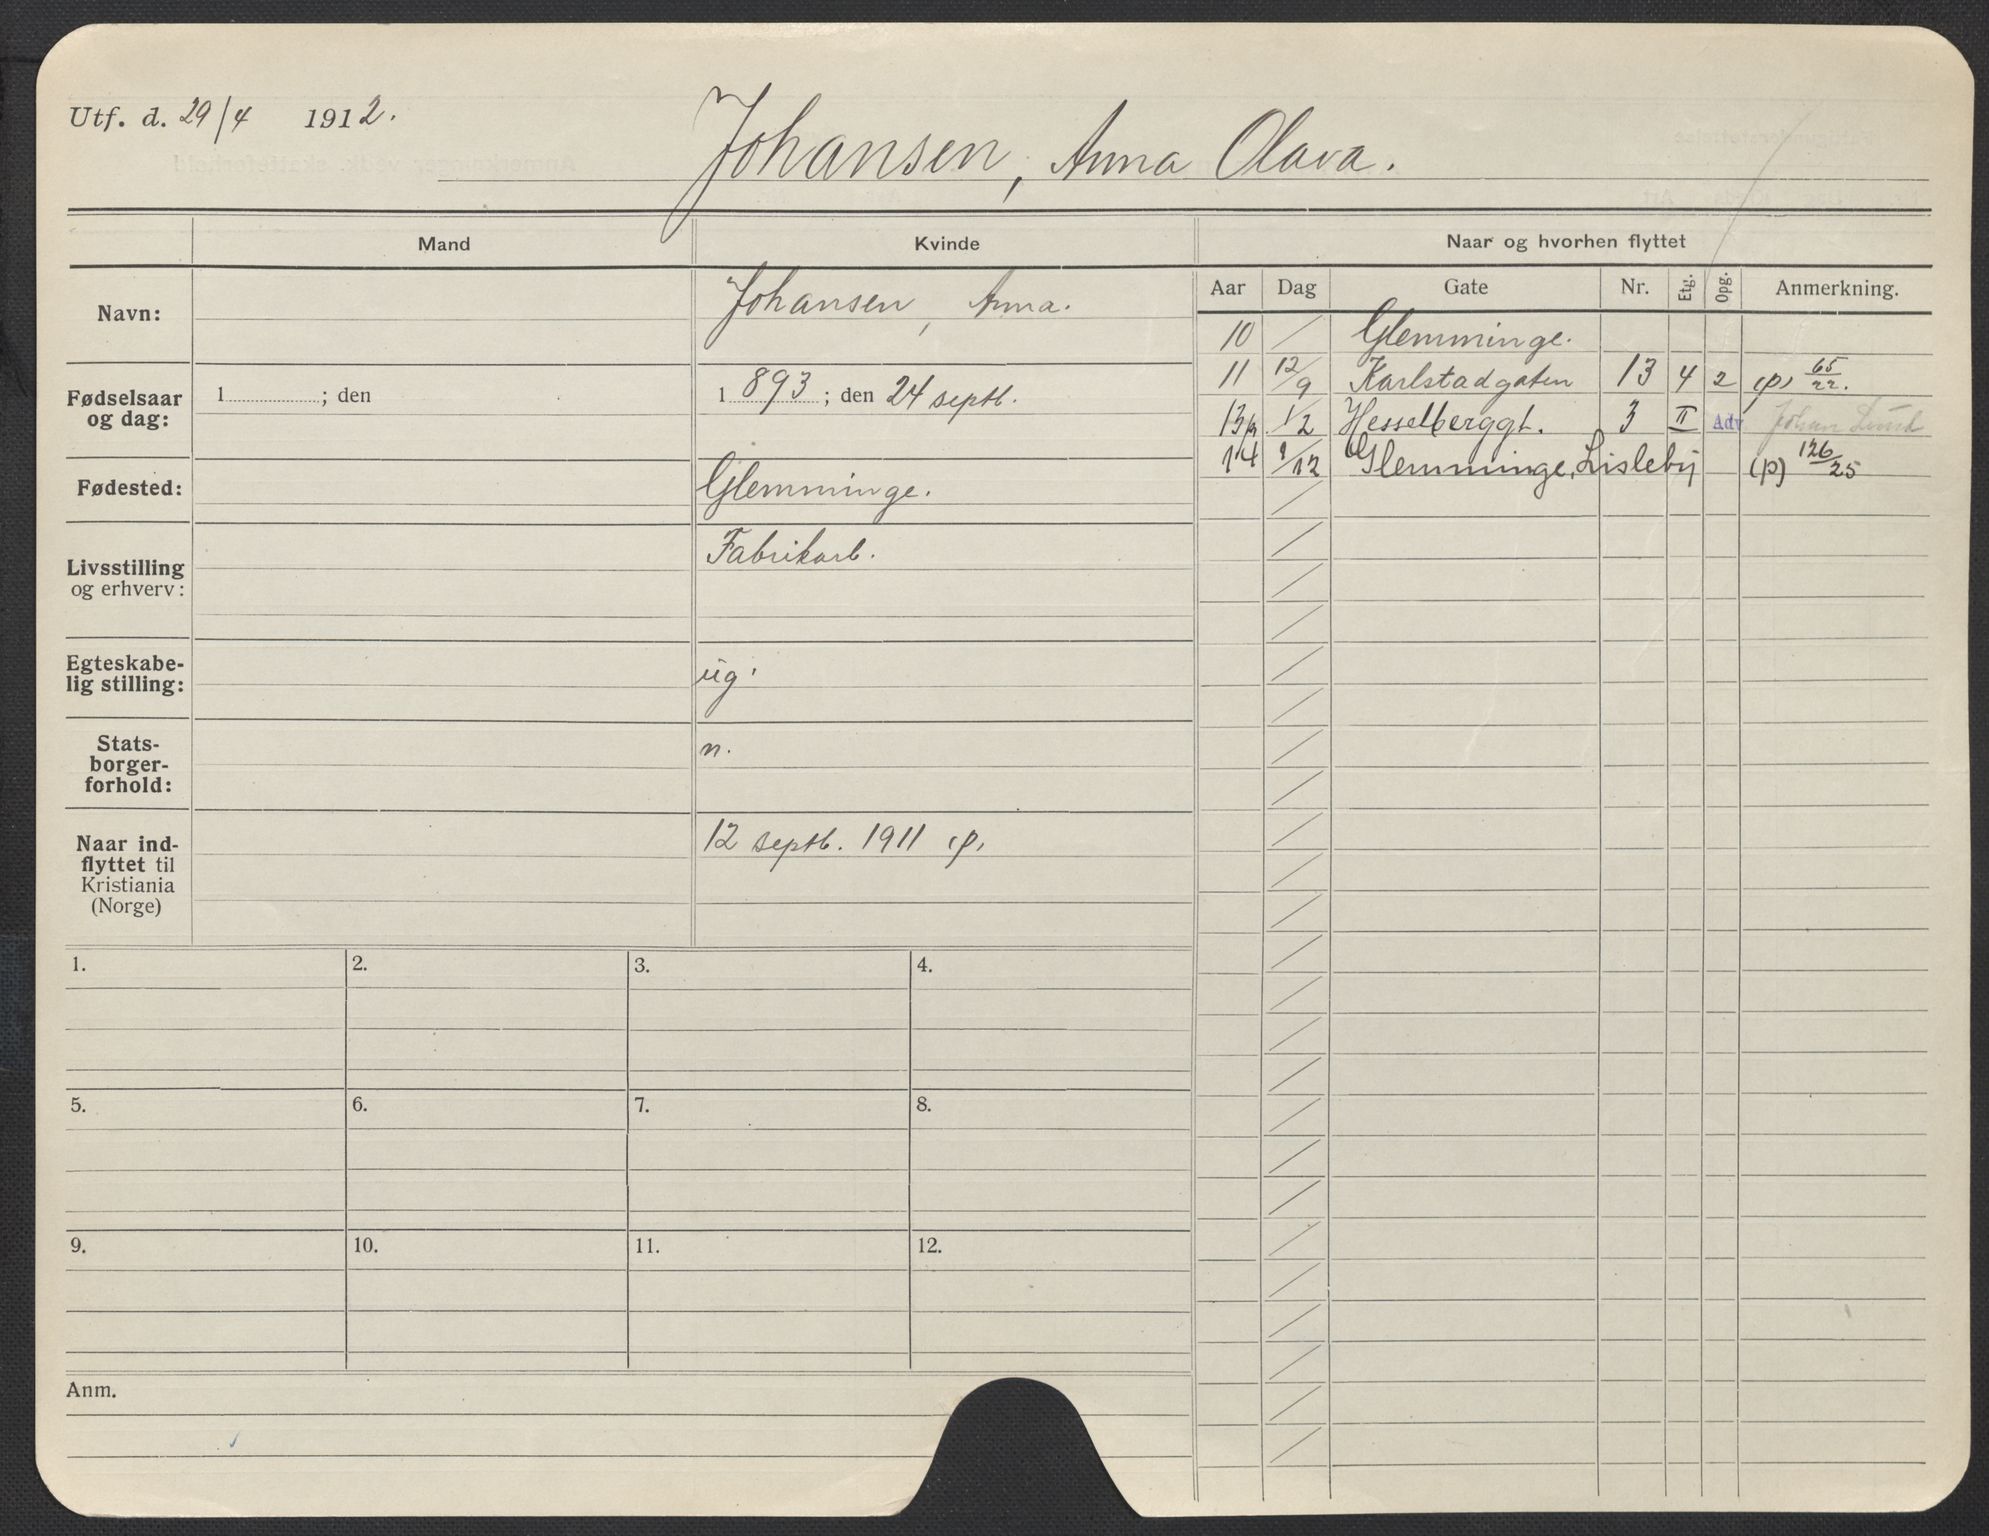 Utf. d. 29/4 1912.
Johansen, Anna Olava.
Mand
Kvinde
Naar og hvorhen flyttet
Navn:
Johansen, Anna.
Fødselsaar og dag:
1 ; den
1 893 ; den 24 septb.
Fødested:
Glemminge.
Livsstilling og erhverv:
Fabrikarb.
Egteskabe-
lig stilling:
ug.
Stats-
borger-
forhold:
n.
Naar ind-
flyttet til
Kristiania
(Norge)
12 septb. 1911 (p)
1. 2. 3. 4.
5. 6. 7. 8.
9. 10. 11. 12.
Anm.
Aar Dag Gate Nr. Etg. Opg. Anmerkning.
10 / Glemminge.
11 12/9 Karlstadgaten 13 4 2 (p) 65/22.
13 1/2 Hesselberggt. 3 II Adv Johan Lund
14 1/12 Glemminge, Lisleby (p) 126/25